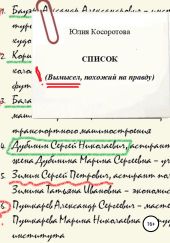 Юлия Косоротова
СПИСОК
(Вымысел, похожий на правду)
транспортного машиностроения
4. Дубинин Сергей Николаевич, аспирант
жена Дубинина Марина Сергеевна – уч
5. Зимин Сергей Петрович, аспирант
Зимина Татьяна Ивановна – экономис
6. Пушкарев Александр Сергеевич – масте
Пушкарева Марина Николаевна –
института
16+